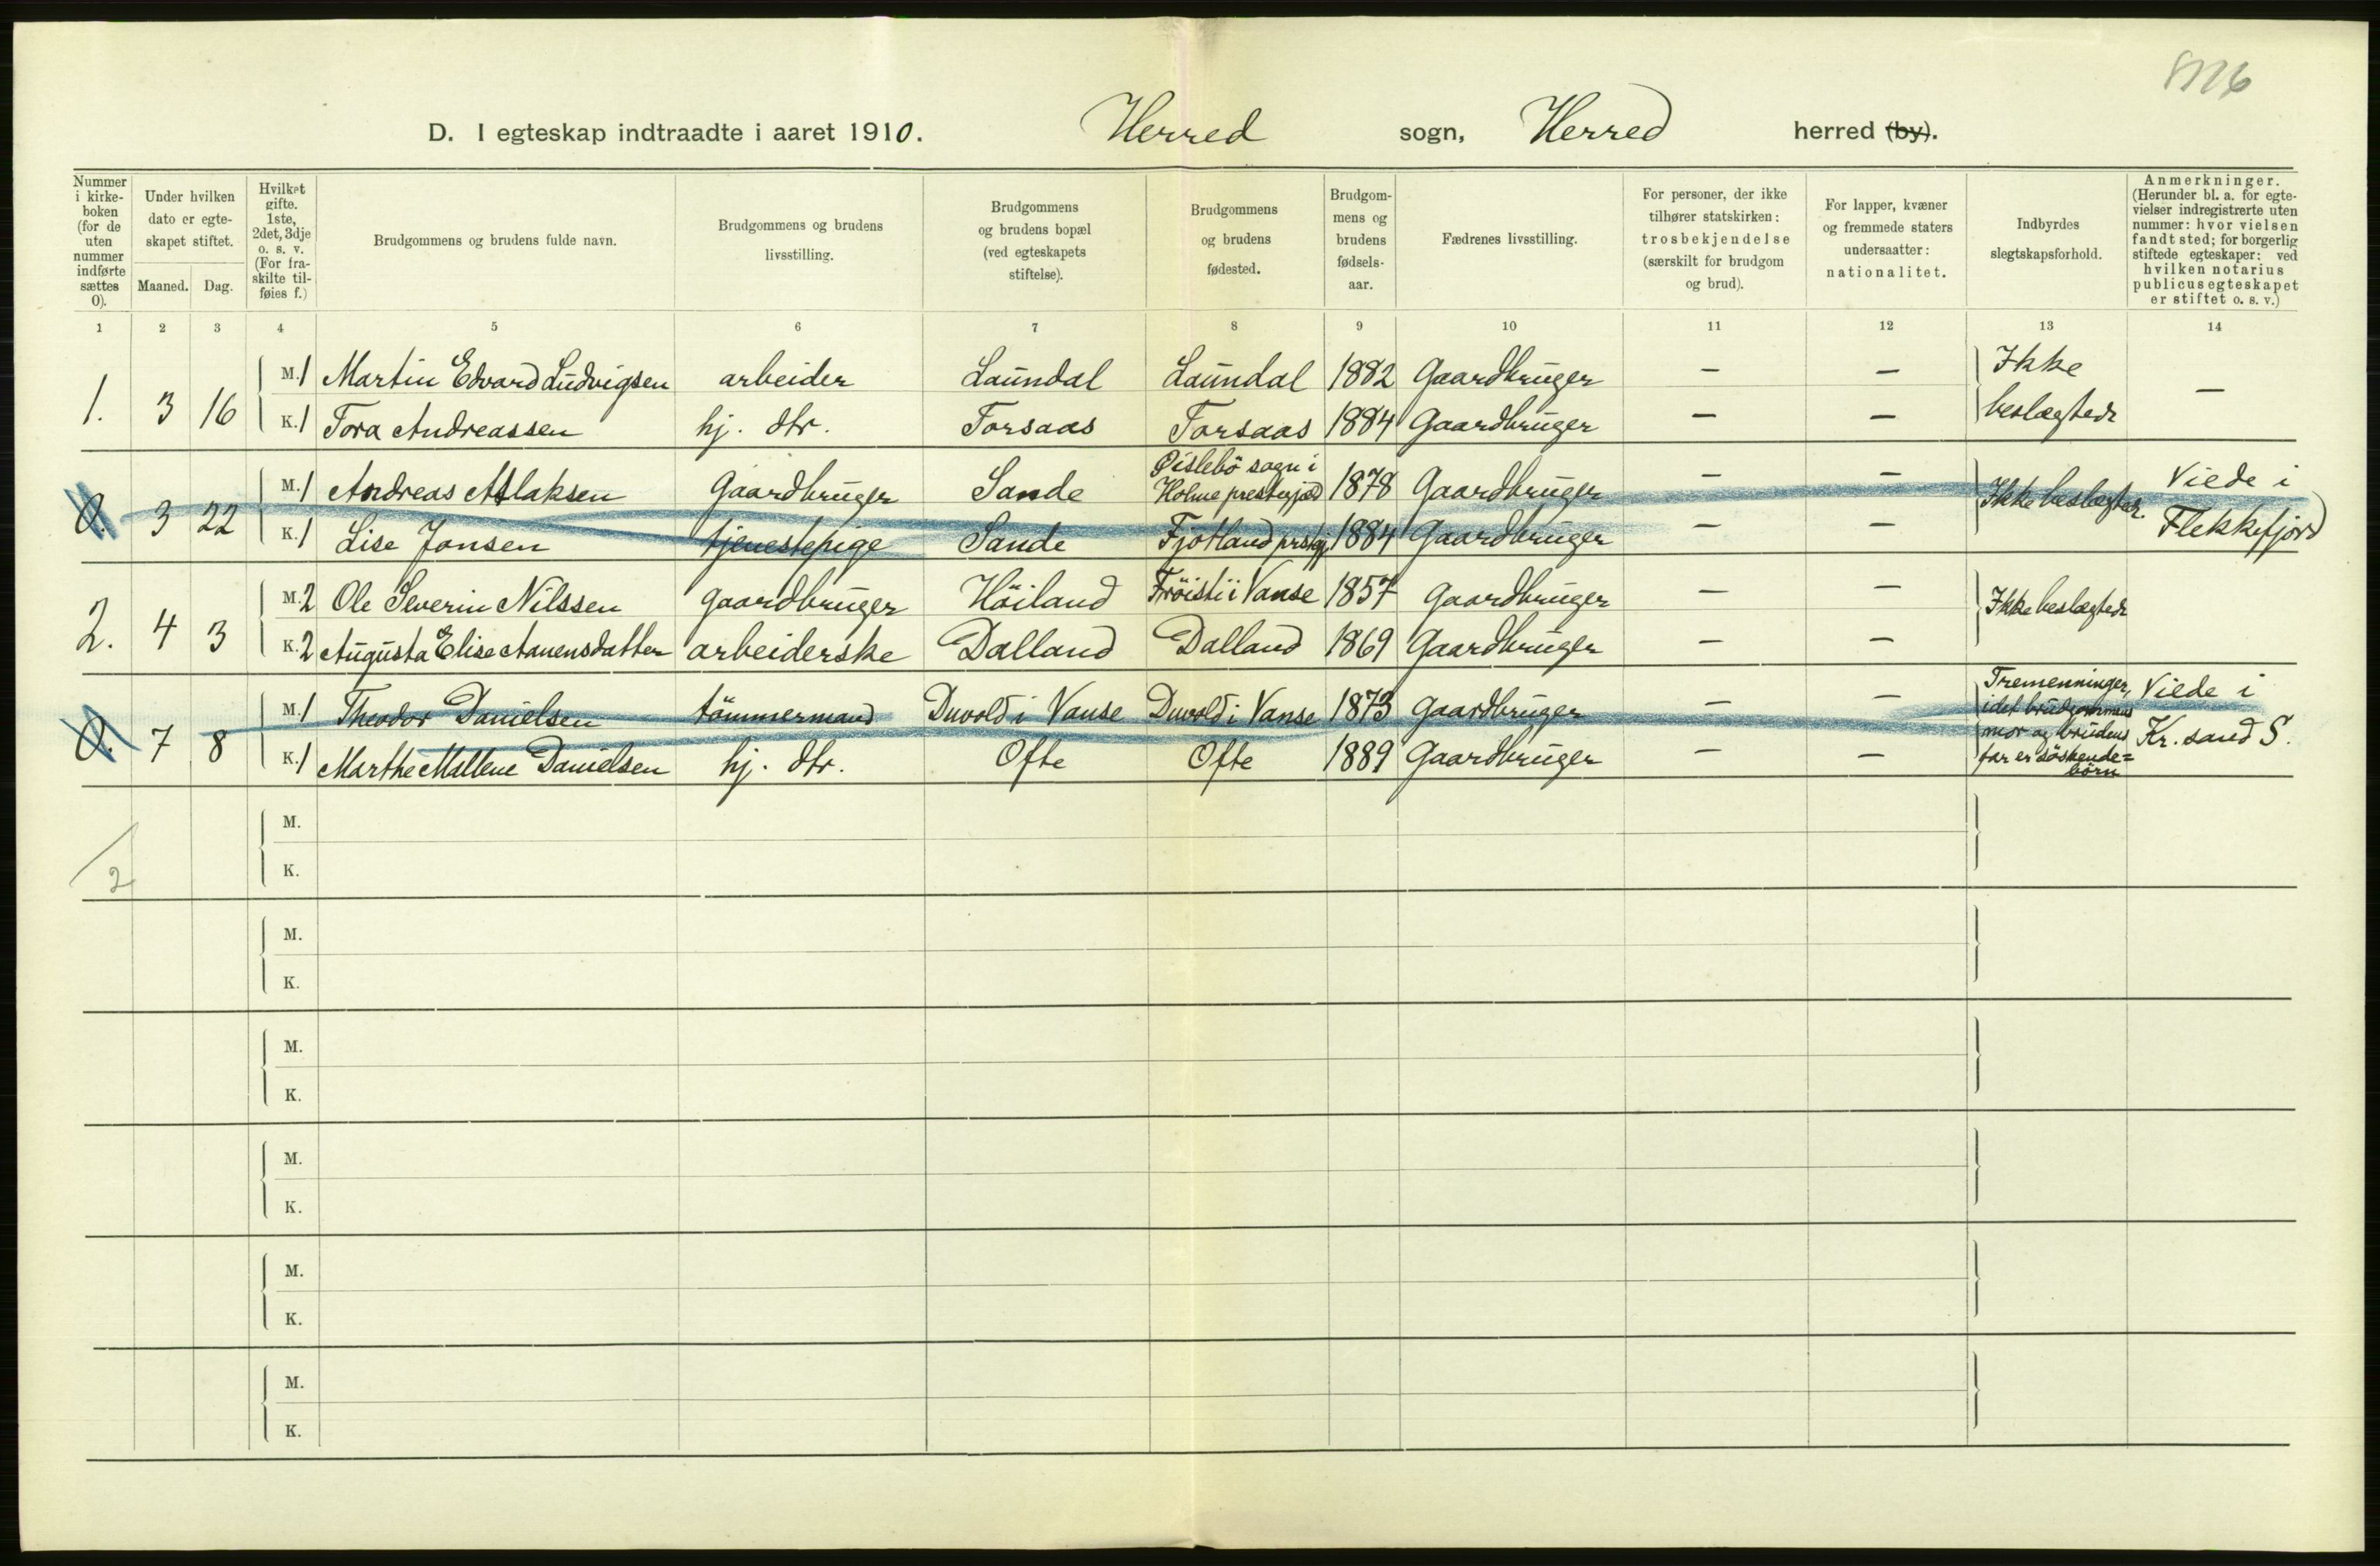 D. I egteskap indtraadte i aaret 1910. Herred sogn, Herred herred (by).
Nummer i kirke-boken (for de uten nummer indførte sættes 0).
Under hvilken dato er egte-skapet stiftet.
Maaned. Dag.
Hvilket gifte. 1ste, 2det, 3dje o. s. v. (For fra-skilte til-føies f.)
Brudgommens og brudens fulde navn.
Brudgommens og brudens livsstilling.
Brudgommens og brudens bopæl (ved egteskapets stiftelse).
Brudgommens og brudens fødested.
Brudgom-mens og brudens fødsels-aar.
Fædrenes livsstilling.
For personer, der ikke tilhører statskirken: trosbekjendelse (særskilt for brudgom og brud).
For lapper, kvæner og fremmede staters undersaatter: nationalitet.
Indbyrdes slegtskapsforhold.
Anmerkninger. (Herunder bl. a. for egte-vielser indregistrerte uten nummer: hvor vielsen fandt sted; for borgerlig stiftede egteskaper: ved hvilken notarius publicus egteskapet er stiftet o. s. v.)
1 2 3 4 5 6 7 8 9 10 11 12 13 14
1. 3 16
M. 1 Martin Edvard Ludvigsen arbeider Laundal Laundal 1882 Gaardbruger — — Ikke beslægtede —
K. 1 Tora Andreassen hj. dtr. Forsaas Forsaas 1884 Gaardbruger — —
0. 3 22
M. 1 Andreas Aslaksen Gaardbruger Sande Øislebö sogn i Holme prestegjæld 1878 Gaardbruger — — Ikke beslægtede. Viede i Flekkefjord
K. 1 Lise Jonsen tjenestepige Sande Fjotland prstgj. 1884 Gaardbruger — —
2. 4 3
M. 2 Ole Severin Nilssen gaardbruger Höiland Fröisti i Vanse 1857 gaardbruger — — Ikke beslægtede
K. 2 Augusta Elise Aanensdatter arbeiderske Dalland Dalland 1869 Gaardbruger — —
0. 7 8
M. 1 Theodor Danielsen tömmermand Duvold i Vanse Duvold i Vanse 1873 gaardbruger — — Tremenninger, idet brudgommens mor og brudens far er söskende=börn Viede i Kr.sand S.
K. 1 Marthe Mallene Danielsen hj. dtr. Ofte Ofte 1889 Gaardbruger — —
2
M.
K.
M.
K.
M.
K.
M.
K.
M.
K.
M.
K.